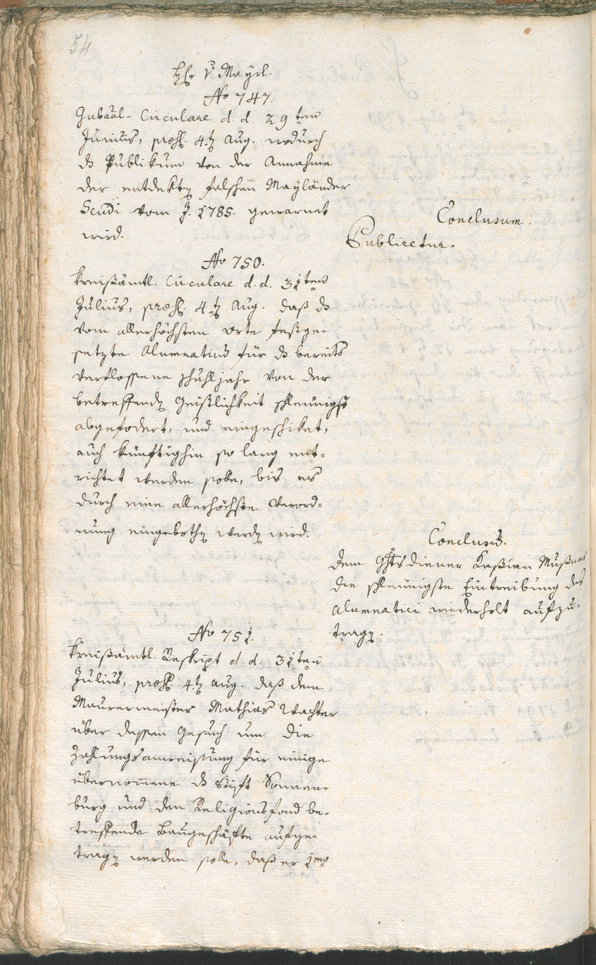 54
H. v. Mayrl.
No 747.
Gubâal-Circulare d. d. 29ten
Junius, præs. 4t Aug. wodurch
ds Publikum von der Annahme
der entdekten falschen Mayländer
Scudi vom J. 1785. gewarnet
wird.
Conclusum.
Publicetur.
No 750.
Kreisämtl. Circulare d. d. 31ten
Julius, præs. 4t Aug. daß ds
vom allerhöchsten Orte festge-
setzte Alumnaticum für ds bereits
verflossene Schuljahr von der
betreffenden Geistlichkeit schleunigst
abgefodert, und eingeschiket,
auch künftighin so lang ent-
richtet werden solle, bis es
durch eine allerhöchste Verord-
nung eingebothen werden wird.
Conclusum.
dem Gchtsdiener Kaßian
die schleunigste Eintreibung des
Alumnatici wiederholt aufzu-
tragen.
No 751.
Kreisämtl. Reskript d. d. 31ten
Julius, præs. 4t Aug. daß dem
Maurermeister Mathias Wachter
über dessen Gesuch um die
Zahlungsanweisung für einige
übernommene ds Stift Sonnen-
burg und den Religionsfond be-
treffende Baugeschäfte aufge-
tragen werden solle, daß er 1mo